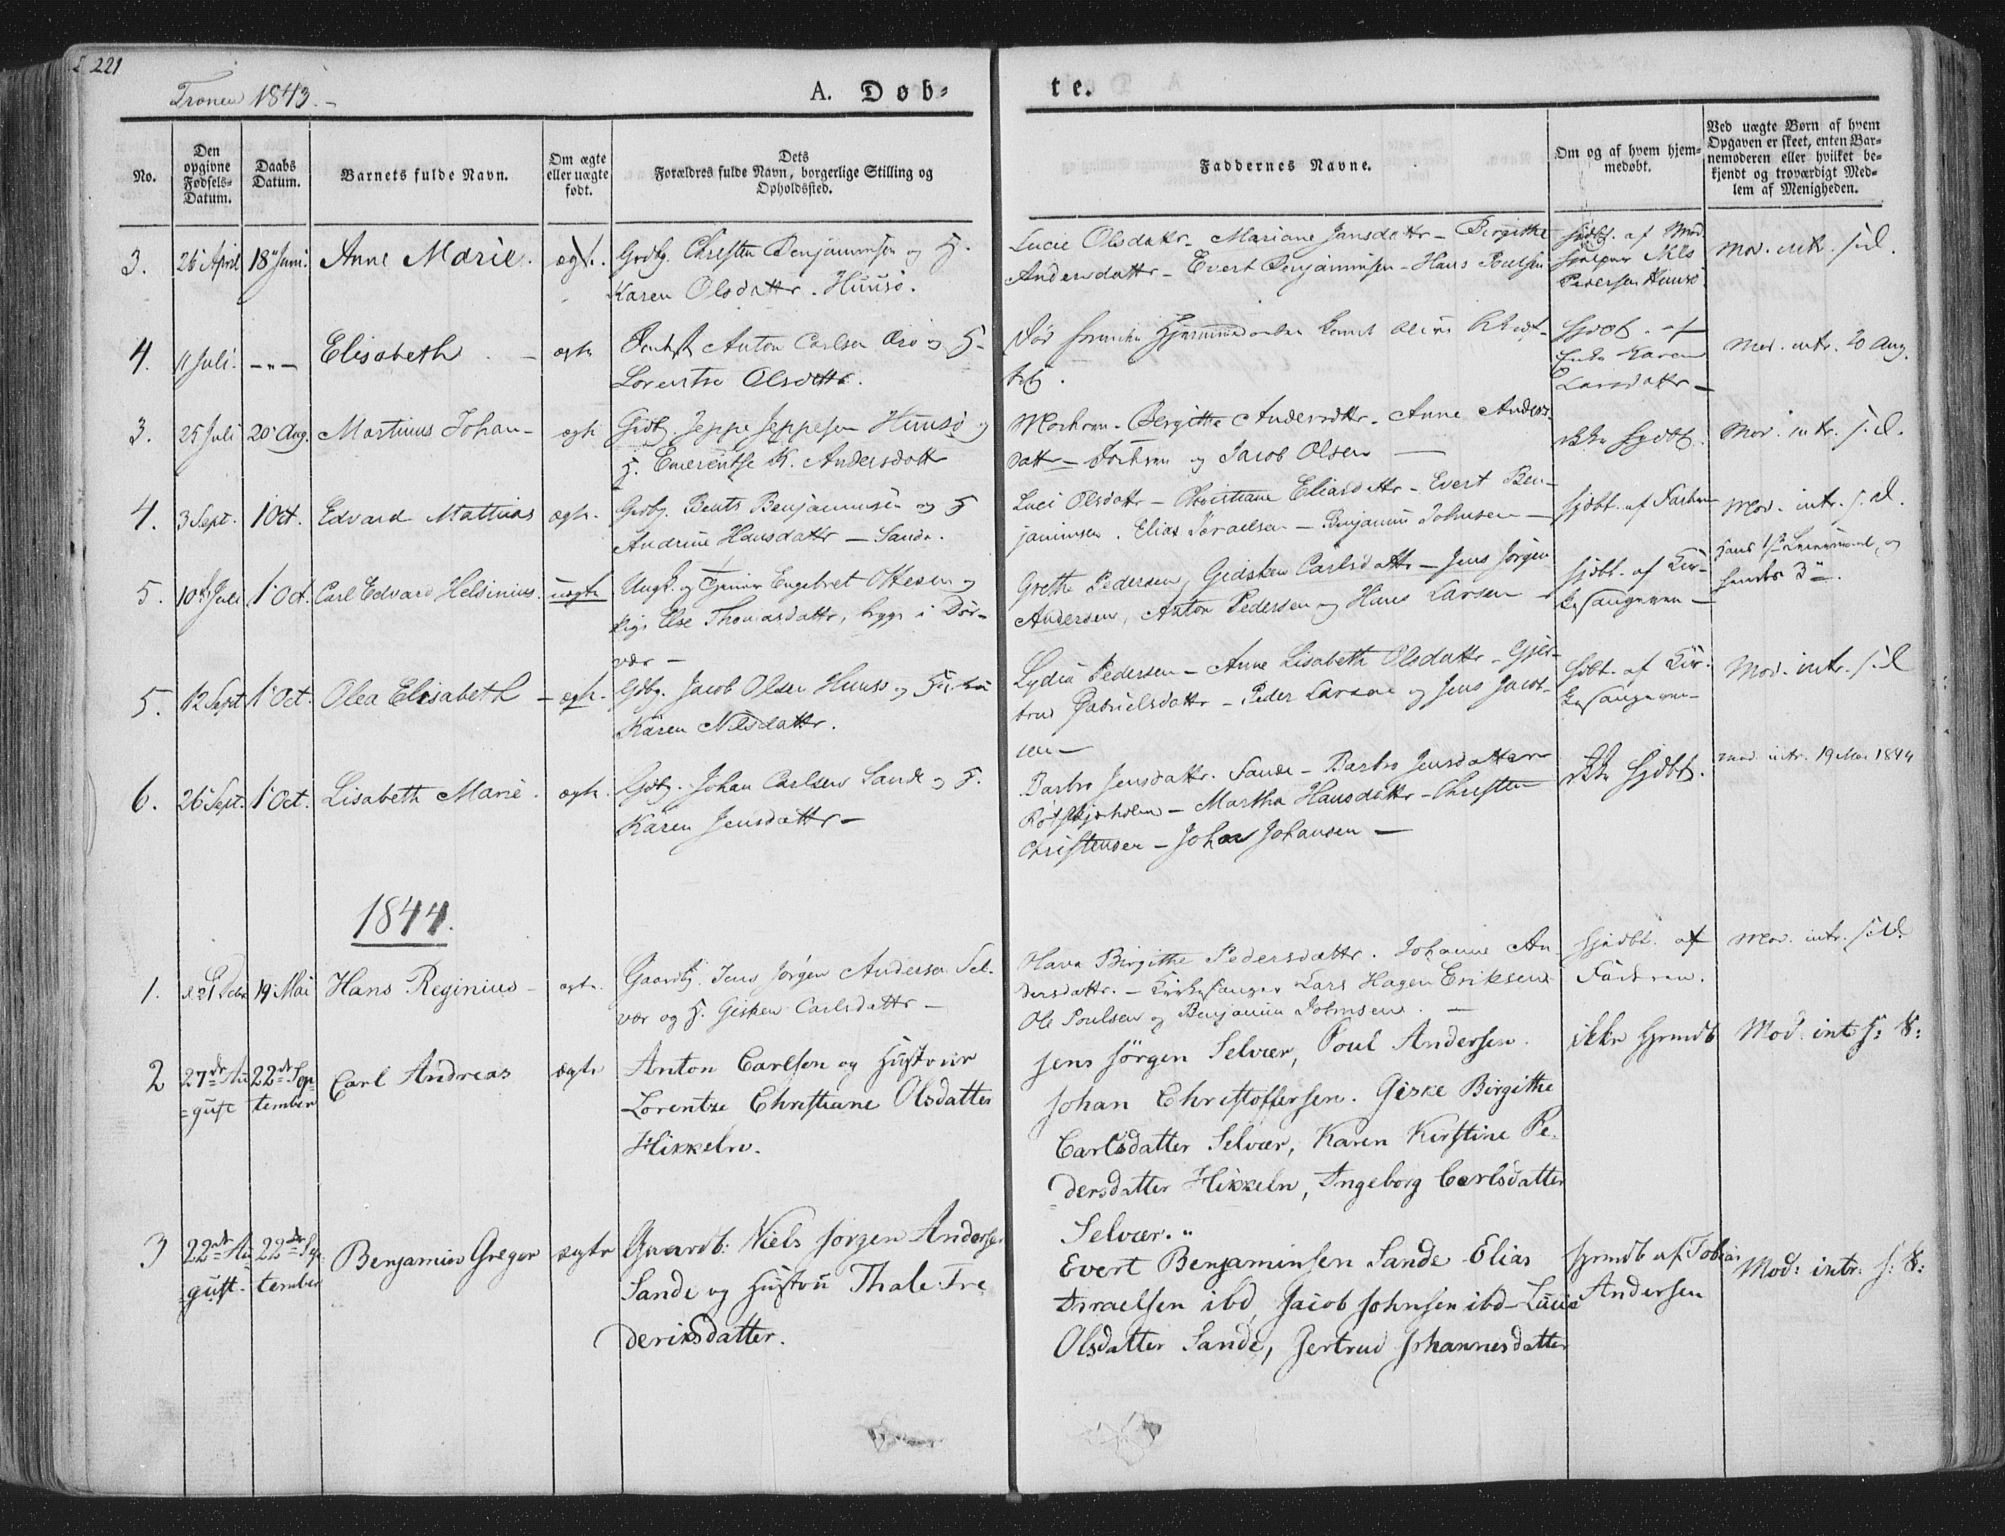 221
Tronen 1843.
A. Døb-
te.
No.
Den
opgivne
Fødsels-
Datum.
Daabs
Datum.
Barnets fulde Navn.
Om ægte
eller uægte
født.
Dets
Forældres fulde Navn, borgerlige Stilling og
Opholdssted.
Faddernes Navne.
Om og af hvem hjem-
medøbt.
Ved uægte Børn af hvem
Opgaven er skeet, enten Bar-
nemoderen eller hvilket be-
kjendt og troværdigt Med-
lem af Menigheden.
3. 26 April 18 Juni. Anne Marie. ægt. Grdbg. Christen Benjaminsen og H.
Karen Olsdattr. Huusø.
Lucie Olsdattr. Mariane Jansdattr - Birgithe
Andersdattr - Evert Benjaminsen - Hans Poulsen
Hjdbt. af Med
hjelper Nils
Pedersen Huusø
Mod. intr. s. d.
4. 11 Juli. - " - Elisabeth - ægte Anton Carlsen og H.
Lorentse Olsdattr.
Død
Hjdbt. af
Karen
Larsdattr -
Mod. intr. 20 Aug.
3. 25 Juli 20 Aug. Martinus Johan - ægt. Grdbg. Jeppe Jeppesen Huusø og
H. Emerentse K. Andersdattr
Modren - Bergitte Andersdttr. Anne Anders-
dattr - Fadren og Jacob Olsen -
ikke hjdbt.
Mod. intr. s. d.
4. 3 Sept. 1 Oct. Edvard Mathias ægte. Grdbg. Bents Benjaminsen og H
Andrine Hansdattr - Sande.
Luci Olsdattr - Christiane Eliasdattr - Evert Ben-
jaminsen. Elias Israelsen - Benjamin Johnsen -
Hjdbt. af Fadren
Mod. intr. s. d.
5. 10 Juli 1 Oct. Carl Edvard Helsinius. uægte Ungk. og Engebret Ottesen og
Pige Else Thomasdattr, begge i Dør-
vær -
Grethe Pedersen, Gidsken Carlsdattr - Jens Jørgen
Andersen, Anton Pedersen og Hans Larsen -
Hjdbt. af Kir-
kesangeren -
hans 1ste Leiermaal, og
hendes 3die.
5. 12 Sept 1 Oct. Olea Elisabeth - ægt. Gdbg. Jacob Olsen Huusø og Hustru
Karen Nilsdattr.
Lydia Pedersen - Anne Lisabeth Olsdattr - Gjer-
trud Gabrielsdattr - Peder Larsen og Jens Jacob-
sen -
Hjdbt. af Kir-
kesangeren -
Mod. intr. s. d
6. 26 Sept. 1 Oct. Lisabeth Marie. ægte. Gdbg. Johan Carlsen Sande og H.
Karen Jensdattr -
Barbro Jensdattr. Sande - Barbro Jensdatter
Rødskjæholm - Martha Hansdattr - Christen
Christensen - Johan Johansen -
ikke hjdbt.
mod. intr. 19 Mai 1844
1844.
1. 21 Febr 19 Mai Hans Reginius - ægte. Gaardbg. Jens Jørgen Andersen Sel-
vær og H. Gisken Carlsdattr -
Hava Birgithe Pedersdattr. Johanne An
dersdattr. - Kirkesanger Lars Hagen Eriksen
Ole Poulsen og Benjamin Johnsen. -
hjedbt. af
Fadren.
Mod. intr. s. d.
2 27de Au 22de Sep Carl Andreas ægte Anton Carlsen og Hustrue
=gust tember
Lorentze Christiane Olsdatter
Hikkeln.
Jens Jørgen Selvær, Poul Andersen.
Johan Christoffersen. Giske Birgithe
Carlsdatter Selvær, Karen Kirstine Pe-
dersdatter Hikkeln, Ingeborg Carlsdatter
Selvær. "
ikke hjemdb
Mod. intr. s: d:
3 22de Au 22de Sep Benjamin Gregor ægte Gaardb: Niels Jørgen Andersen
=gust. tember
Sande og Hustru Thale Fre
deriksdatter.
Evert Benjaminsen Sande - Elias
Israelsen ibd, Jacob Johnsen ibd - Lucie
Olsdatter Sande, Jertrud Johannesdatter
hjemdb af Tobias
Andersen
Mod: intr. s: d: